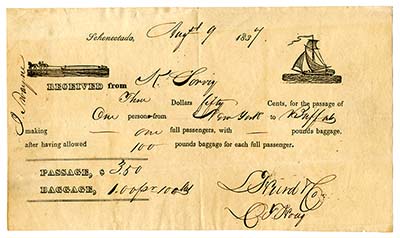 Schenectada, Augst 9 1837
RECEIVED from Mr
Three Dollars fifty Cents, for the passage of
One person from New York to Buffalo
making — one full passengers, with — pounds baggage.
after having allowed 100 pounds baggage for each full passenger.
PASSAGE, $ 3.50
BAGGAGE, 1.00 pr 100 lbs